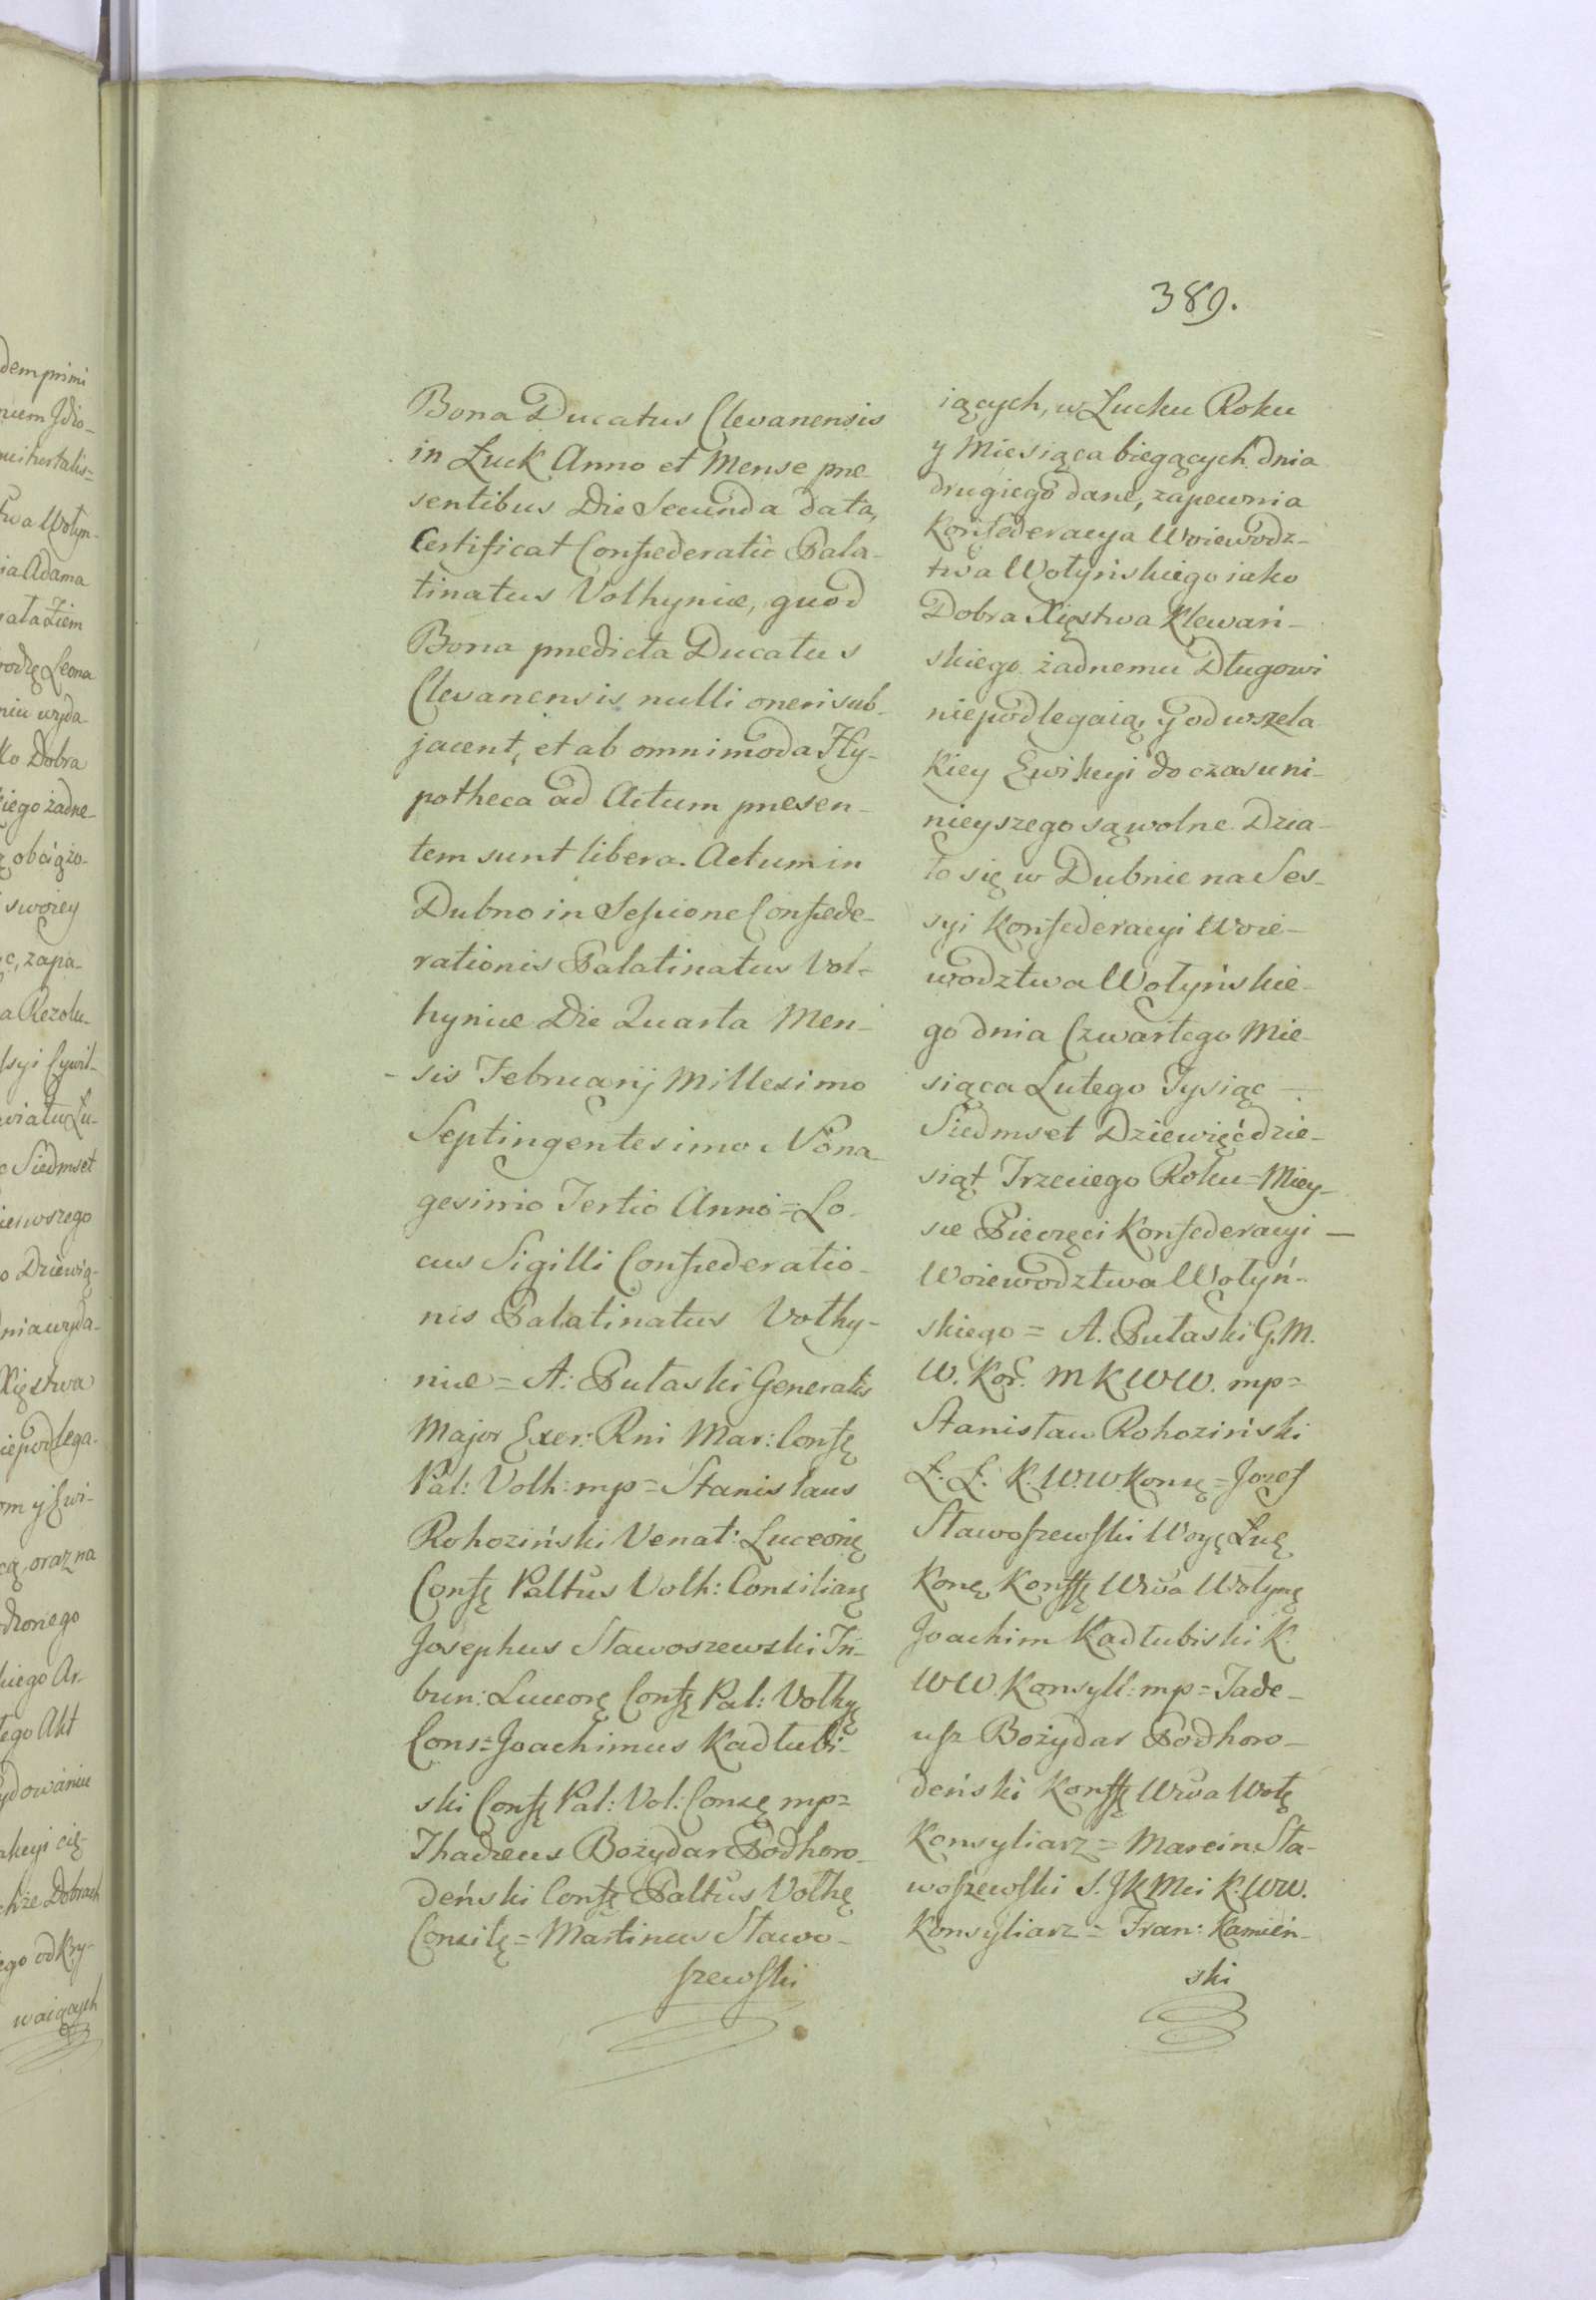 389.
Bona Ducatus Clevanensis
in Łuck Anno et Mense præ
sentibus Die Secunda data,
Certificat Confœderatio Pala-
tinatus Volhyniæ, quod
Bona prædicta Ducatus
Clevanensis nulli oneri sub-
jacent, et ab omnimoda Hy-
potheca ad Actum præsen-
tem sunt libera. Actum in
Dubno in Sessione Confœde-
rationis Palatinatus Vol-
hyniæ Die Quarta Men-
sis Februarij Millesimo
Septingentesimo Nona-
gesimo Tertio Anno = Lo-
cus Sigilli Confœderatio-
nis Palatinatus Volhy-
niæ = A: Pułaski Generalis
Major Exer: Rni Mar: Confę
Pal: Volh: mp = Stanislaus
Rohoziński Venat: Luceorię
Confę Paltus Volh: Consiliarę
Josephus Stawoszewski Tri-
bun: Luceorę Confę Pal: Volhyę
Cons = Joachimus Kadłubi-
ski Confę Pal: Vol: Consę mp =
Thadæus Bożydar Podhoro-
deński Confę Paltus Volhę
Consilę = Martinus Stawo-
szewski
iących, w Łucku Roku
y Miesiąca biegących dnia
drugiego dane, zapewnia
Konfederacya Woiewodz-
twa Wołyńskiego iako
Dobra Xięstwa Klewań-
skiego żadnemu Długowi
niepodlegaią, y od wszela
kiey Ewikcyi do czasu ni-
nieyszego są wolne. Dzia-
ło się w Dubnie na Ses-
syi Konfederacyi Woie-
wodztwa Wołyńskie-
go dnia Czwartego Mie-
siąca Lutego Tysiąc —
Siedmset Dziewięćdzie-
siąt Trzeciego Roku = Miey-
sce Pieczęci Konfederacyi —
Woiewodztwa Wołyń-
skiego = A. Pułaski G. M.
W. Kor. M K W W. mp =
Stanisław Rohoziński
Ł. Ł. K. W. W. Konsę = Jozef
Stawoszewski Woyę Łuę
Konę Konffę Wwa Wołynę
Joachim Kadłubiski K.
W W. Konsyll: mp = Tade-
usz Bożydar Podhoro-
deński Konffę Wwa Wołę
Konsyliarz = Marcin Sta-
woszewski S. J K Mci K. W W.
Konsyliarz = Fran: Kamień-
ski
dem primi
twa Wołyn-
ia Adama
Leona
niu wyda
ko Dobra
iego żadne-
obciążo-
swoiey
c, zapa-
a Rezolu-
syi Cywil-
wiatu Łu-
c Siedmset
ierwszego
o Dziewią-
dnia wyda-
Xięstwa
iepodlega-
om y Ewi-
cą, oraz na
dzonego
kiego Ar-
tego Akt
ydowaniu
akcyi cię-
kże Dobrach
ego od Kry-
waiących